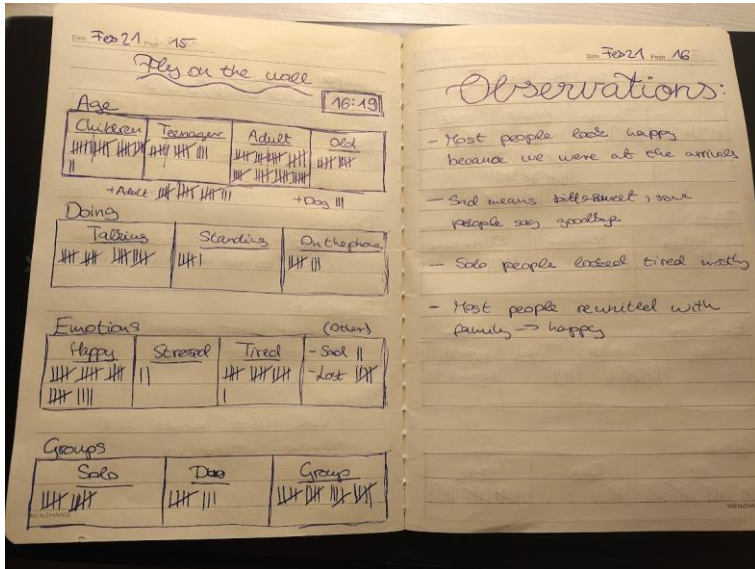 Date Feb 21 Page 15
Fly on the wall
16:19
Age
Children Teenager Adult Old
+Adult +Dog
Doing
Talking Standing On the phone
Emotions (Other)
Happy Stressed Tired - Sad
- Lost
Groups
Solo Duo Group
WENZHANG
Date Feb 21 Page 16
Observations:
- Most people look happy
because we were at the arrivals
- Sad means bittersweet, some
people say goodbye
- Solo people looked tired mostly
- Most people reunited with
family -> happy